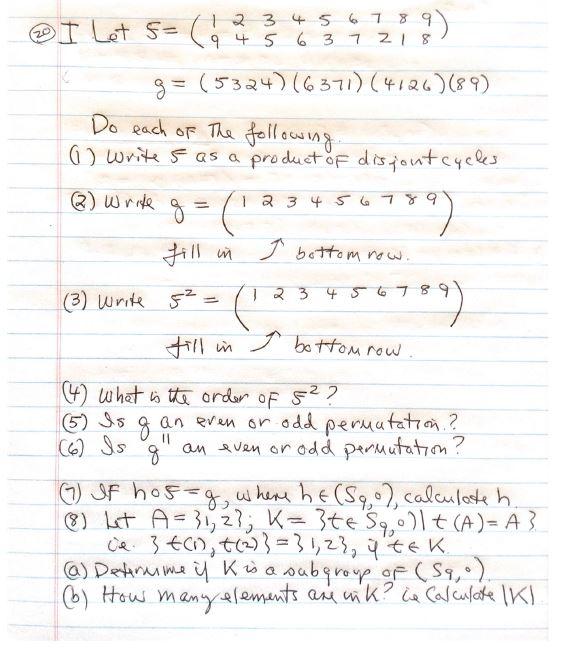 20 I Let 5 = ( 1 2 3 4 5 6 7 8 9
9 4 5 6 3 7 2 1 8 )
g = (5324)(6371)(4126)(89)
Do each of The following.
(1) Write 5 as a product of disjoint cycles
(2) Write g = ( 1 2 3 4 5 6 7 8 9 )
fill in ↑ bottom row.
(3) Write 5² = ( 1 2 3 4 5 6 7 8 9 )
fill in ↑ bottom row.
(4) What is the order of 5²?
(5) Is g an even or odd permutation?
(6) Is g" an even or odd permutation?
(7) If ho5 = g, where h ∈ (S9,o), calculate h.
(8) Let A = {1, 2}; K = {t ∈ S9, o) | t(A) = A}
ie. {t(1), t(2)} = {1, 2}, if t ∈ K.
(a) Determine if K is a subgroup of (S9, o).
(b) How many elements are in K? ie Calculate |K|